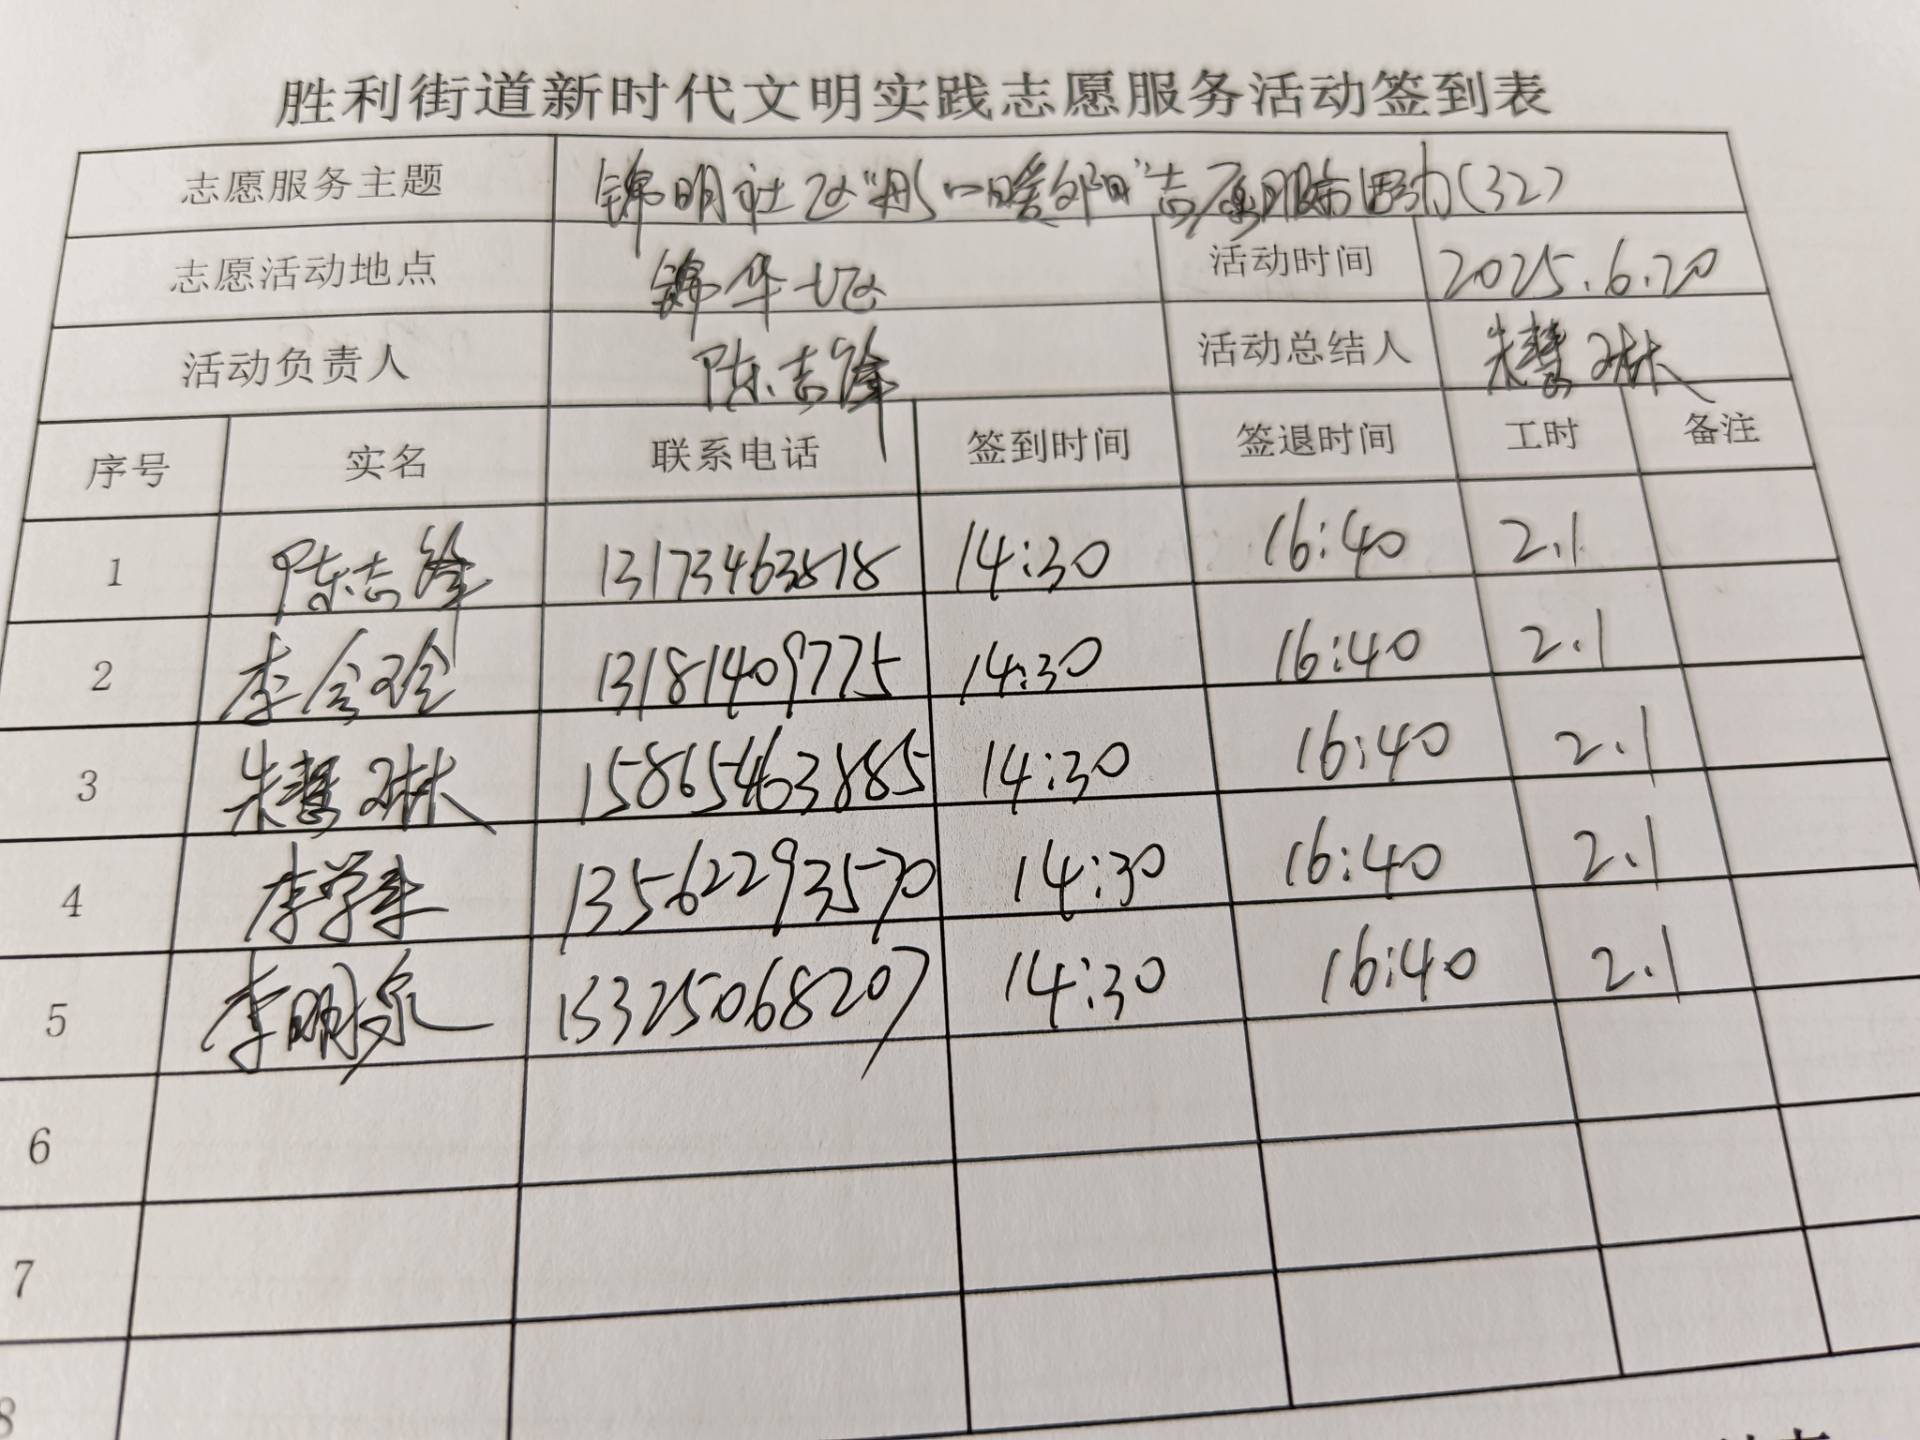 胜利街道新时代文明实践志愿服务活动签到表
志愿服务主题 锦明社区“彤一暖夕阳”志愿服务活动(32)
志愿活动地点 锦华七区 活动时间 2025.6.20
活动负责人 陈志锋 活动总结人 朱慧琳
序号 实名 联系电话 签到时间 签退时间 工时 备注
1 陈志锋 13173463818 14:30 16:40 2.1
2 李会玲 13181409775 14:30 16:40 2.1
3 朱慧琳 15865463885 14:30 16:40 2.1
4 李学 13562293570 14:30 16:40 2.1
5 李明泉 15325068207 14:30 16:40 2.1
6
7
8